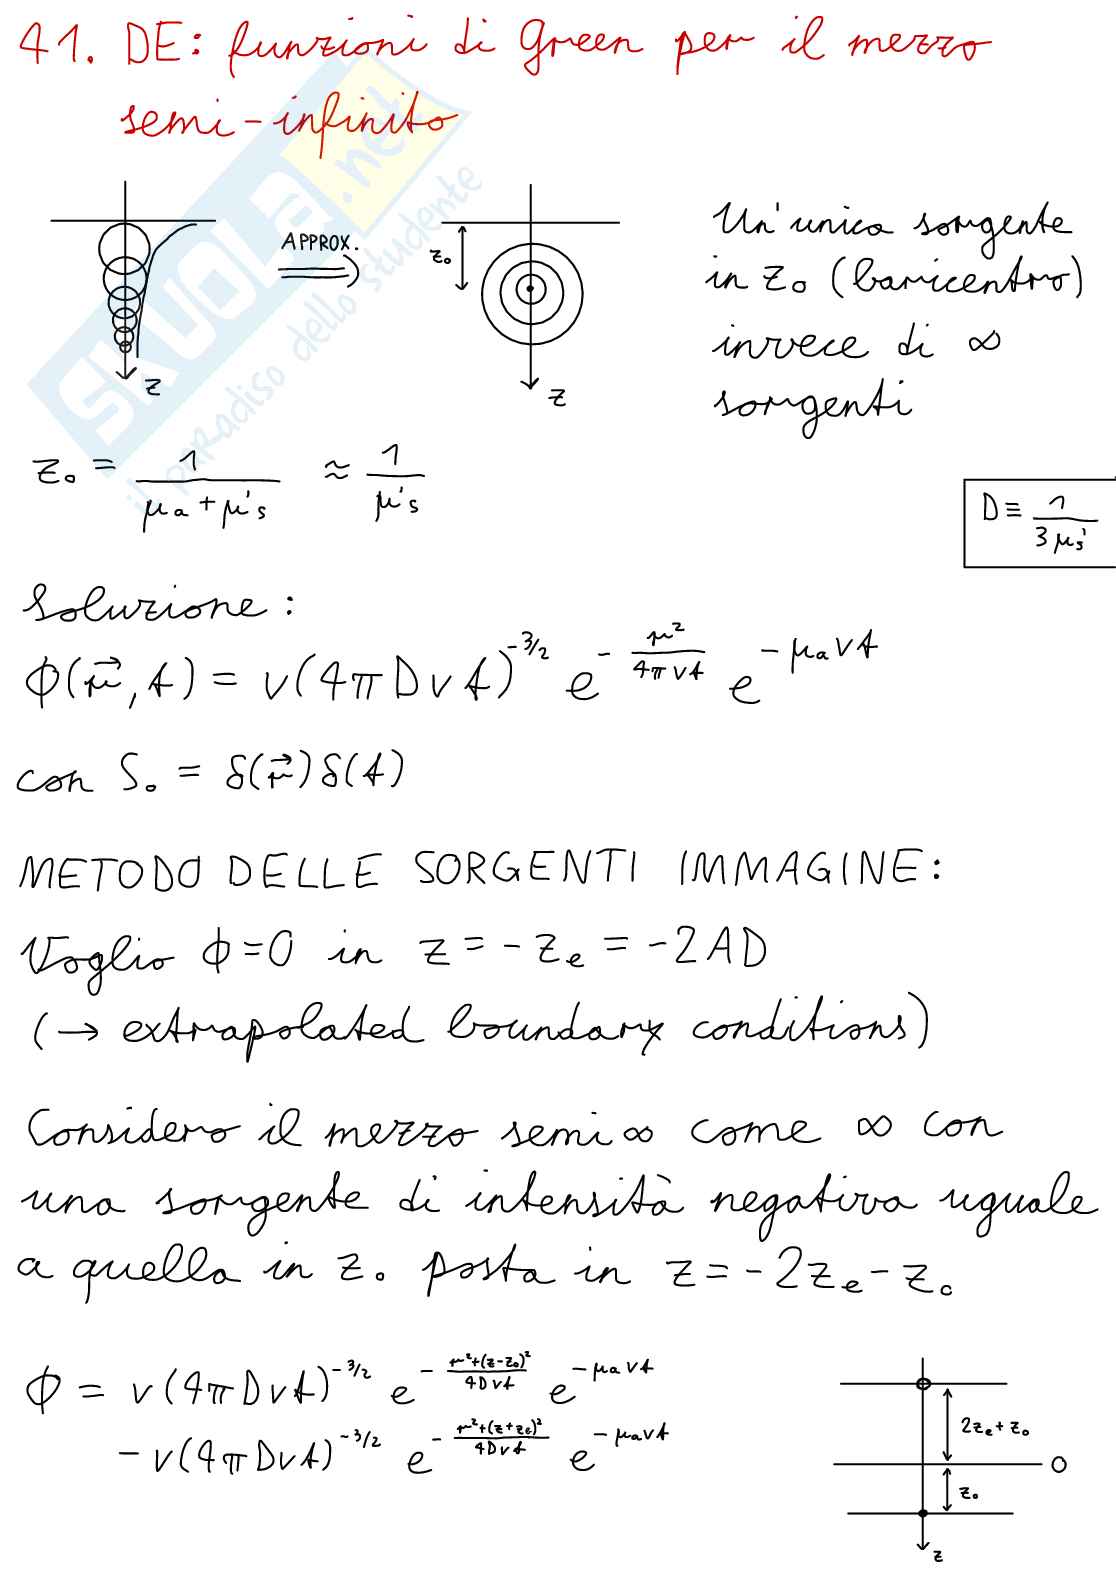 41. DE: funzioni di Green per il mezzo
semi-infinito
SKUOLA.net
il paradiso dello studente
APPROX.
z₀
z
z
Un'unica sorgente
in z₀ (baricentro)
invece di ∞
sorgenti
z₀ = 1/(μa + μ's) ≈ 1/μ's
D ≡ 1/(3μs')
Soluzione:
ϕ(r⃗, t) = v(4πDvt)^(-3/2) e^(-r²/(4πvt)) e^(-μavt)
con S₀ = δ(r⃗)δ(t)
METODO DELLE SORGENTI IMMAGINE:
Voglio ϕ=0 in z = -ze = -2AD
(→ extrapolated boundary conditions)
Considero il mezzo semi∞ come ∞ con
una sorgente di intensità negativa uguale
a quella in z₀ posta in z = -2ze - z₀
ϕ = v(4πDvt)^(-3/2) e^(-(r²+(z-z₀)²)/(4Dvt)) e^(-μavt)
- v(4πDvt)^(-3/2) e^(-(r²+(z+ze)²)/(4Dvt)) e^(-μavt)
2ze+z₀
0
z₀
z